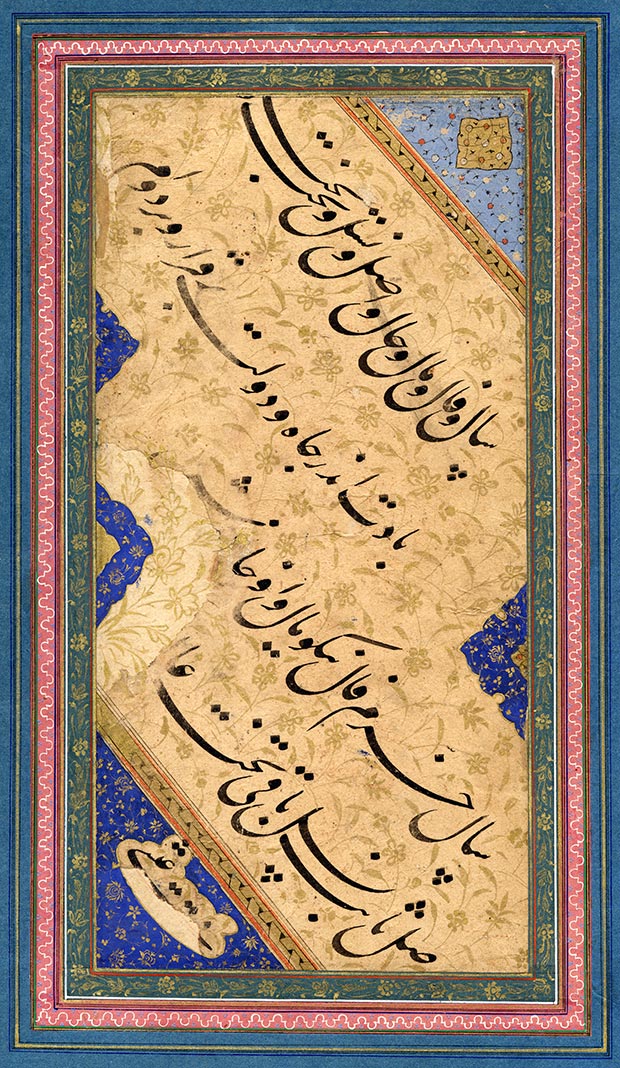 سال و فال و مال و حال و اصل و نسل و تخت و بخت
بادت اندر جاه و دولت برقرار و بر دوام
سال خرم فال نیکو مال وافر حال خوش
اصل ثابت نسل باقی تخت عالی